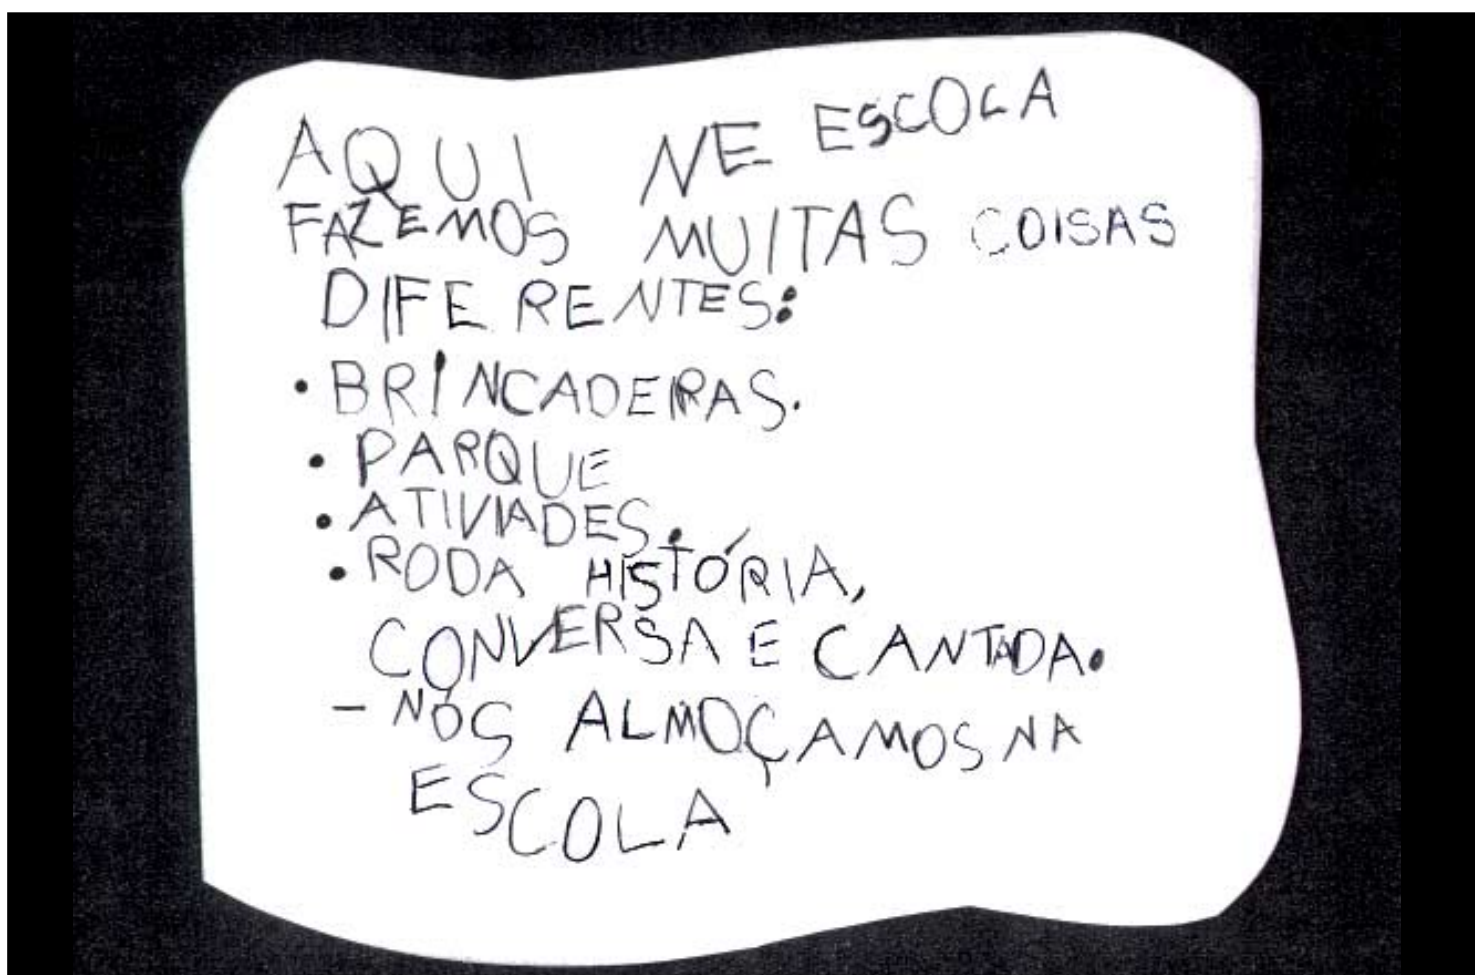 AQUI NE ESCOLA
FAZEMOS MUITAS COISAS
DIFERENTES:
• BRINCADERAS.
• PARQUE
• ATIVIADES.
• RODA HISTÓRIA,
CONVERSA E CANTADA.
- NÓS ALMOÇAMOS NA
ESCOLA